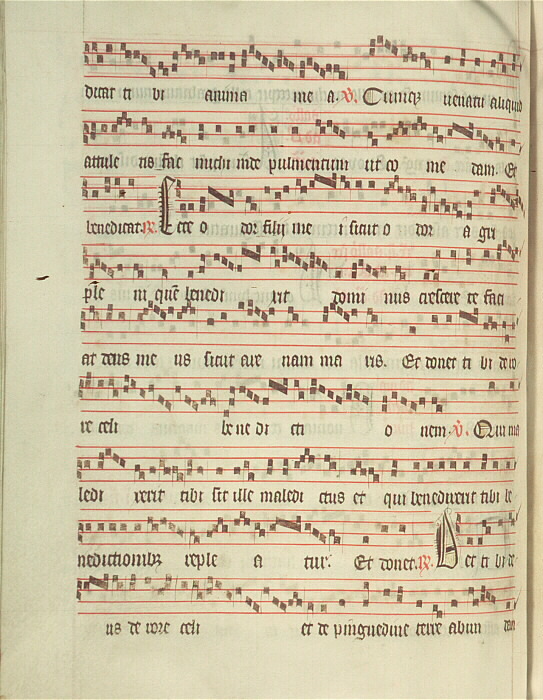 dicat ti bi anima me a. V. Cumq3 uenatu aliquid
attule ris fac michi inde pulmentum ut co me dam. Et
benedicat. R. Ecce o dor filij me i sicut o dor a gri
ple ni quē benedi xit domi nus crescere te faci
at deus me us sicut are nam ma ris. Et donet ti bi de ro
re celi be ne di cti o nem. V. Qui ma
ledi xerit tibi sit ille maledi ctus et qui benedixerit tibi be
nedictionib3 reple a tur. Et donet. R. Det ti bi de
us de rore celi et de pinguedine terre abun dan